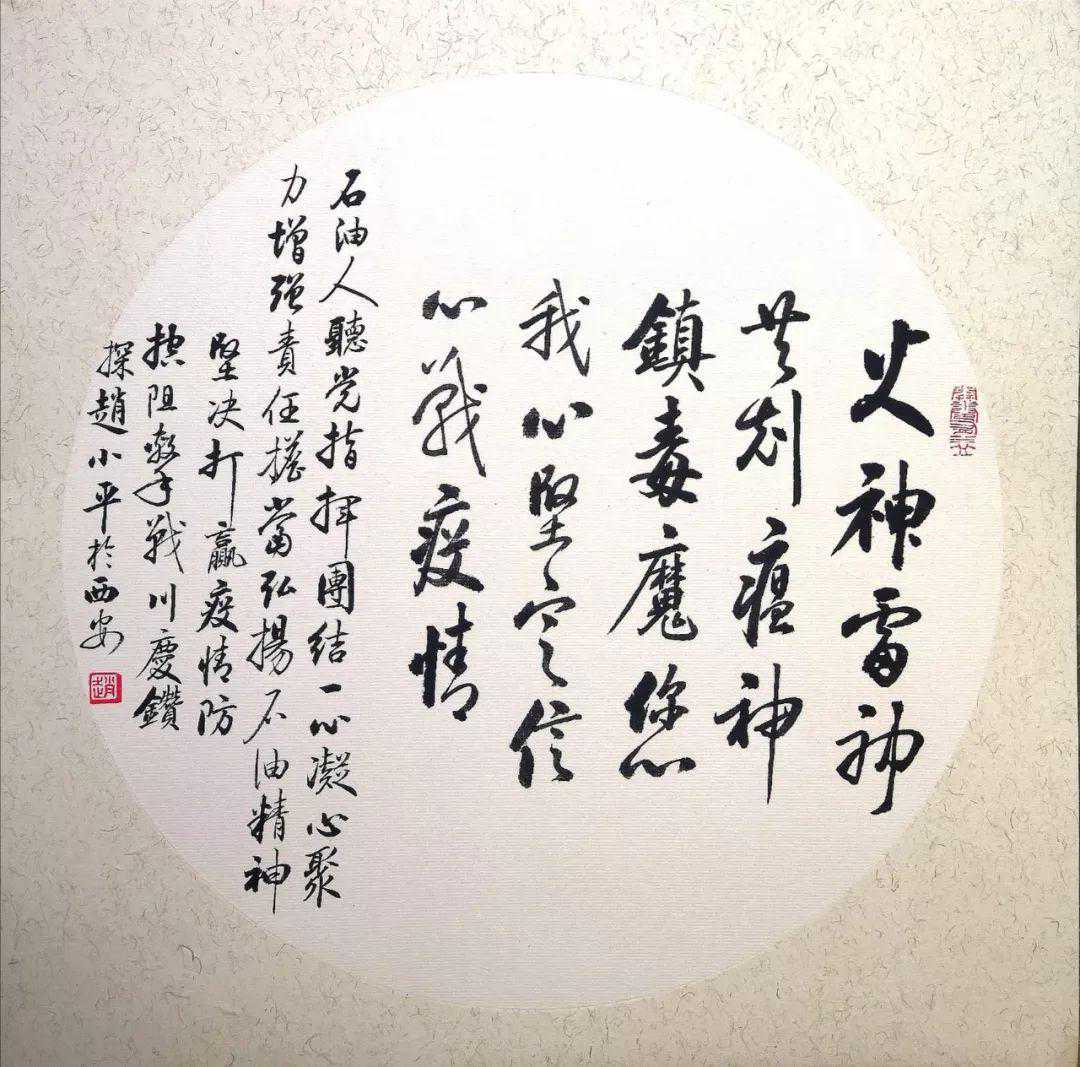 火神雷神
共剋瘟神
鎮毒魔你心
我心堅定信
心戰疫情
石油人聽党指揮團結一心凝心聚
力增强責任擔當弘揚石油精神
堅决打贏疫情防
控阻擊戰川慶鑽
探趙小平於西安
趙